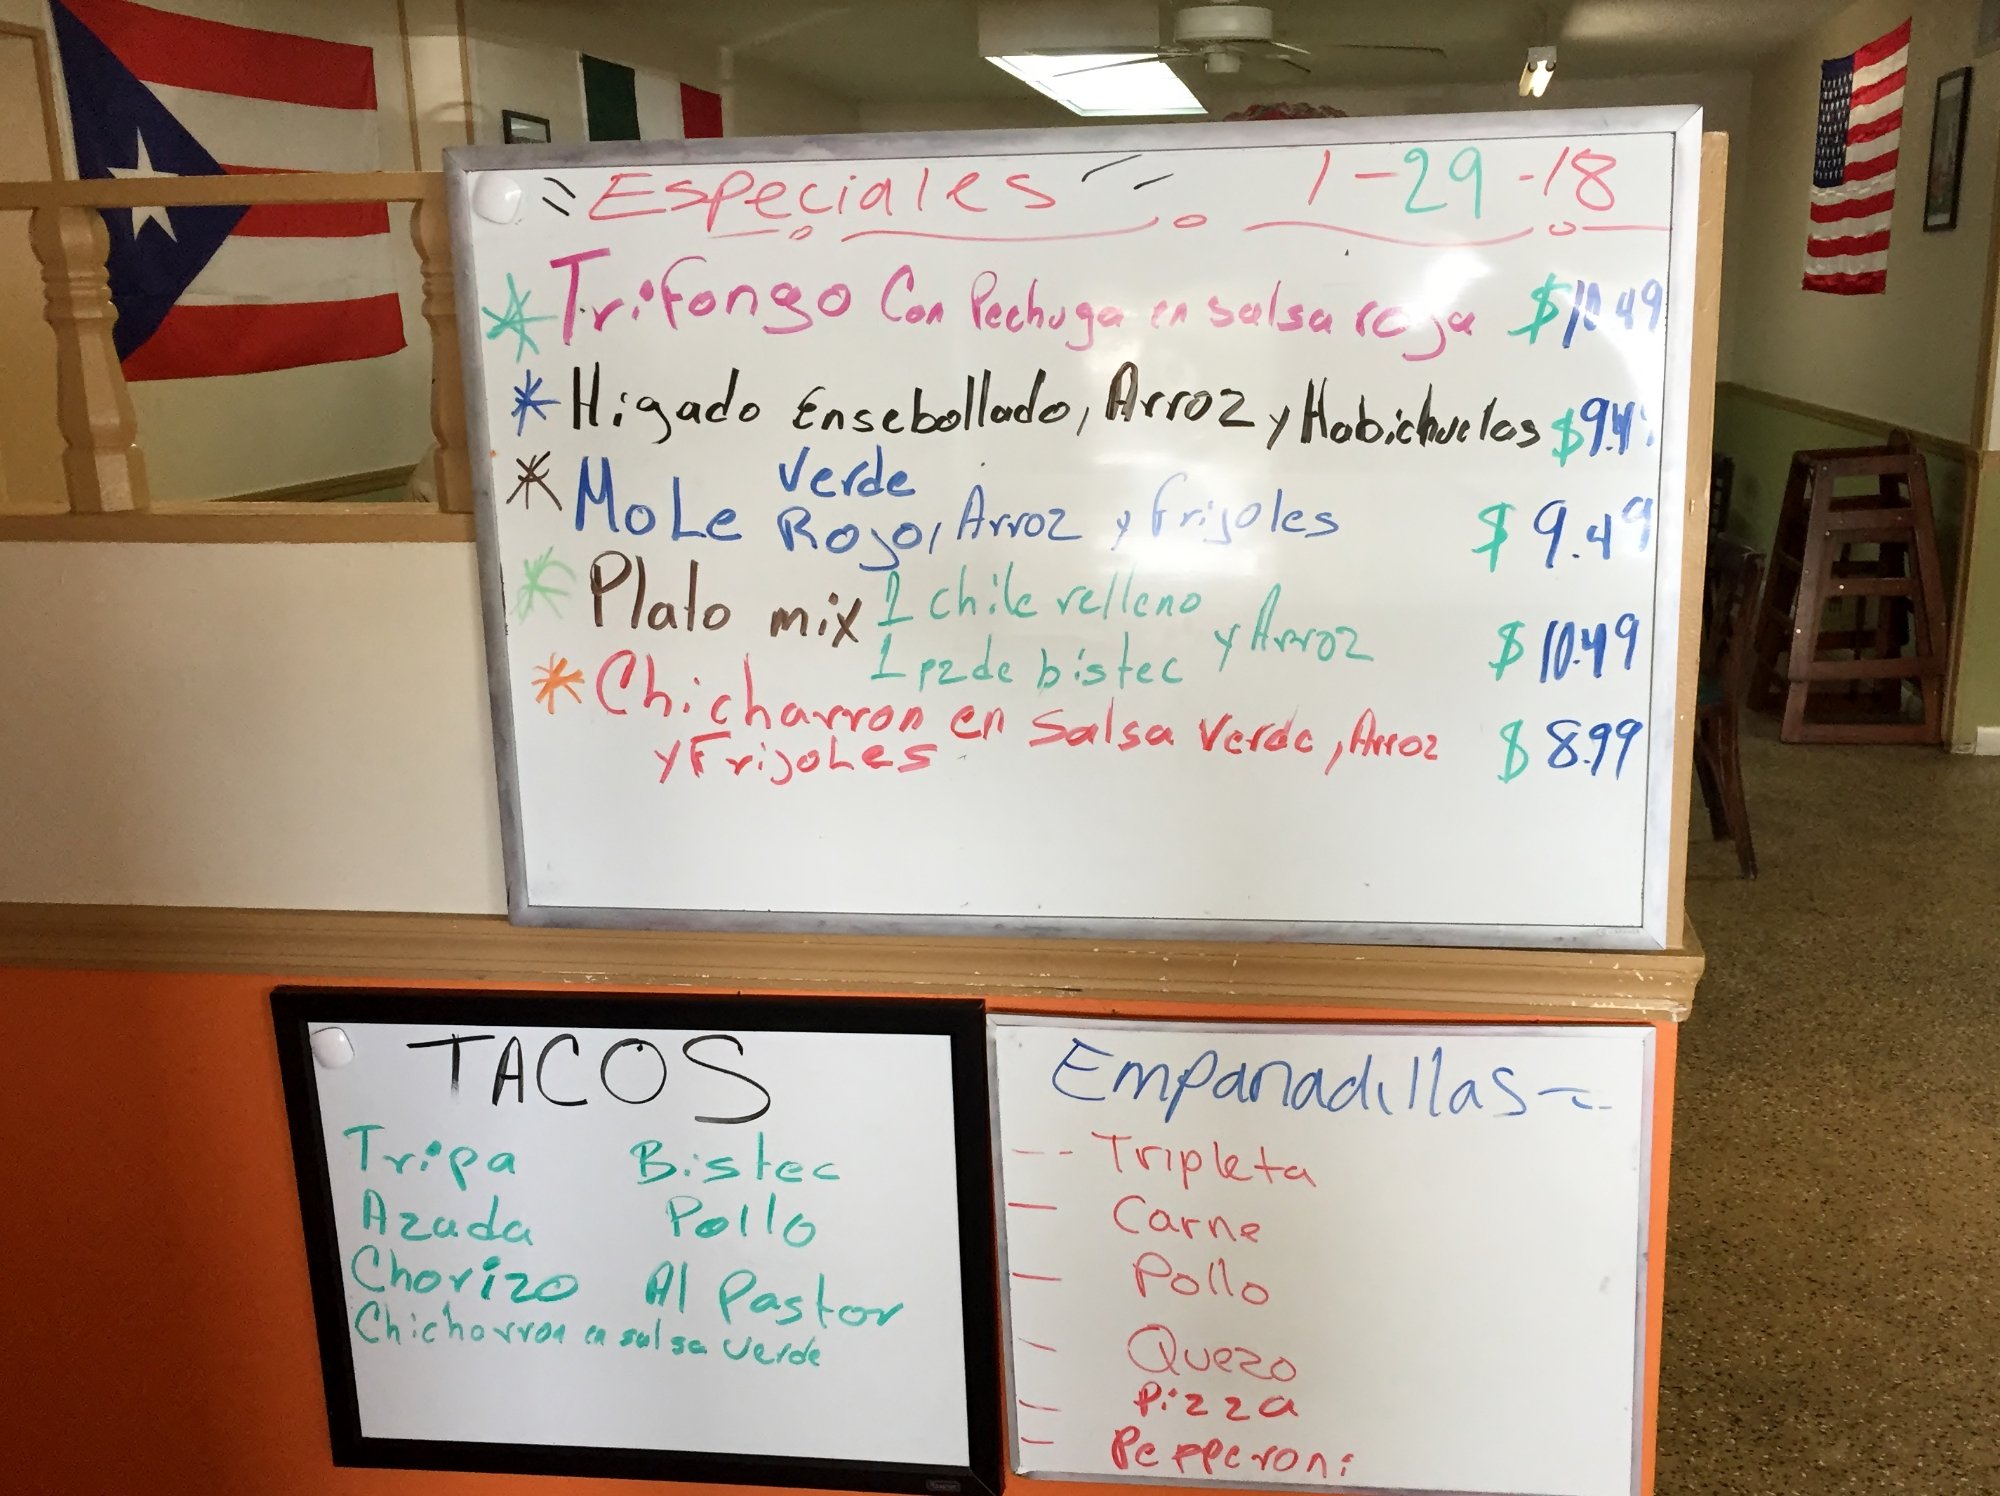 Especiales 1-29-18
Trifongo Con Pechuga en salsa roja $10.49
Higado Ensebollado, Arroz y Habichuelas $9.4
Verde
MoLe Rojo, Arroz y Frijoles $9.49
1 chile relleno
Plato mix y Arroz $10.49
1 pz de bistec
Chicharron en Salsa Verde, Arroz $8.99
y FrijoLes
TACOS
Tripa Bistec
Azada Pollo
Chorizo Al Pastor
Chicharron en salsa verde
EmpanadillAs
Tripleta
Carne
Pollo
Quezo
Pizza
Pepperoni